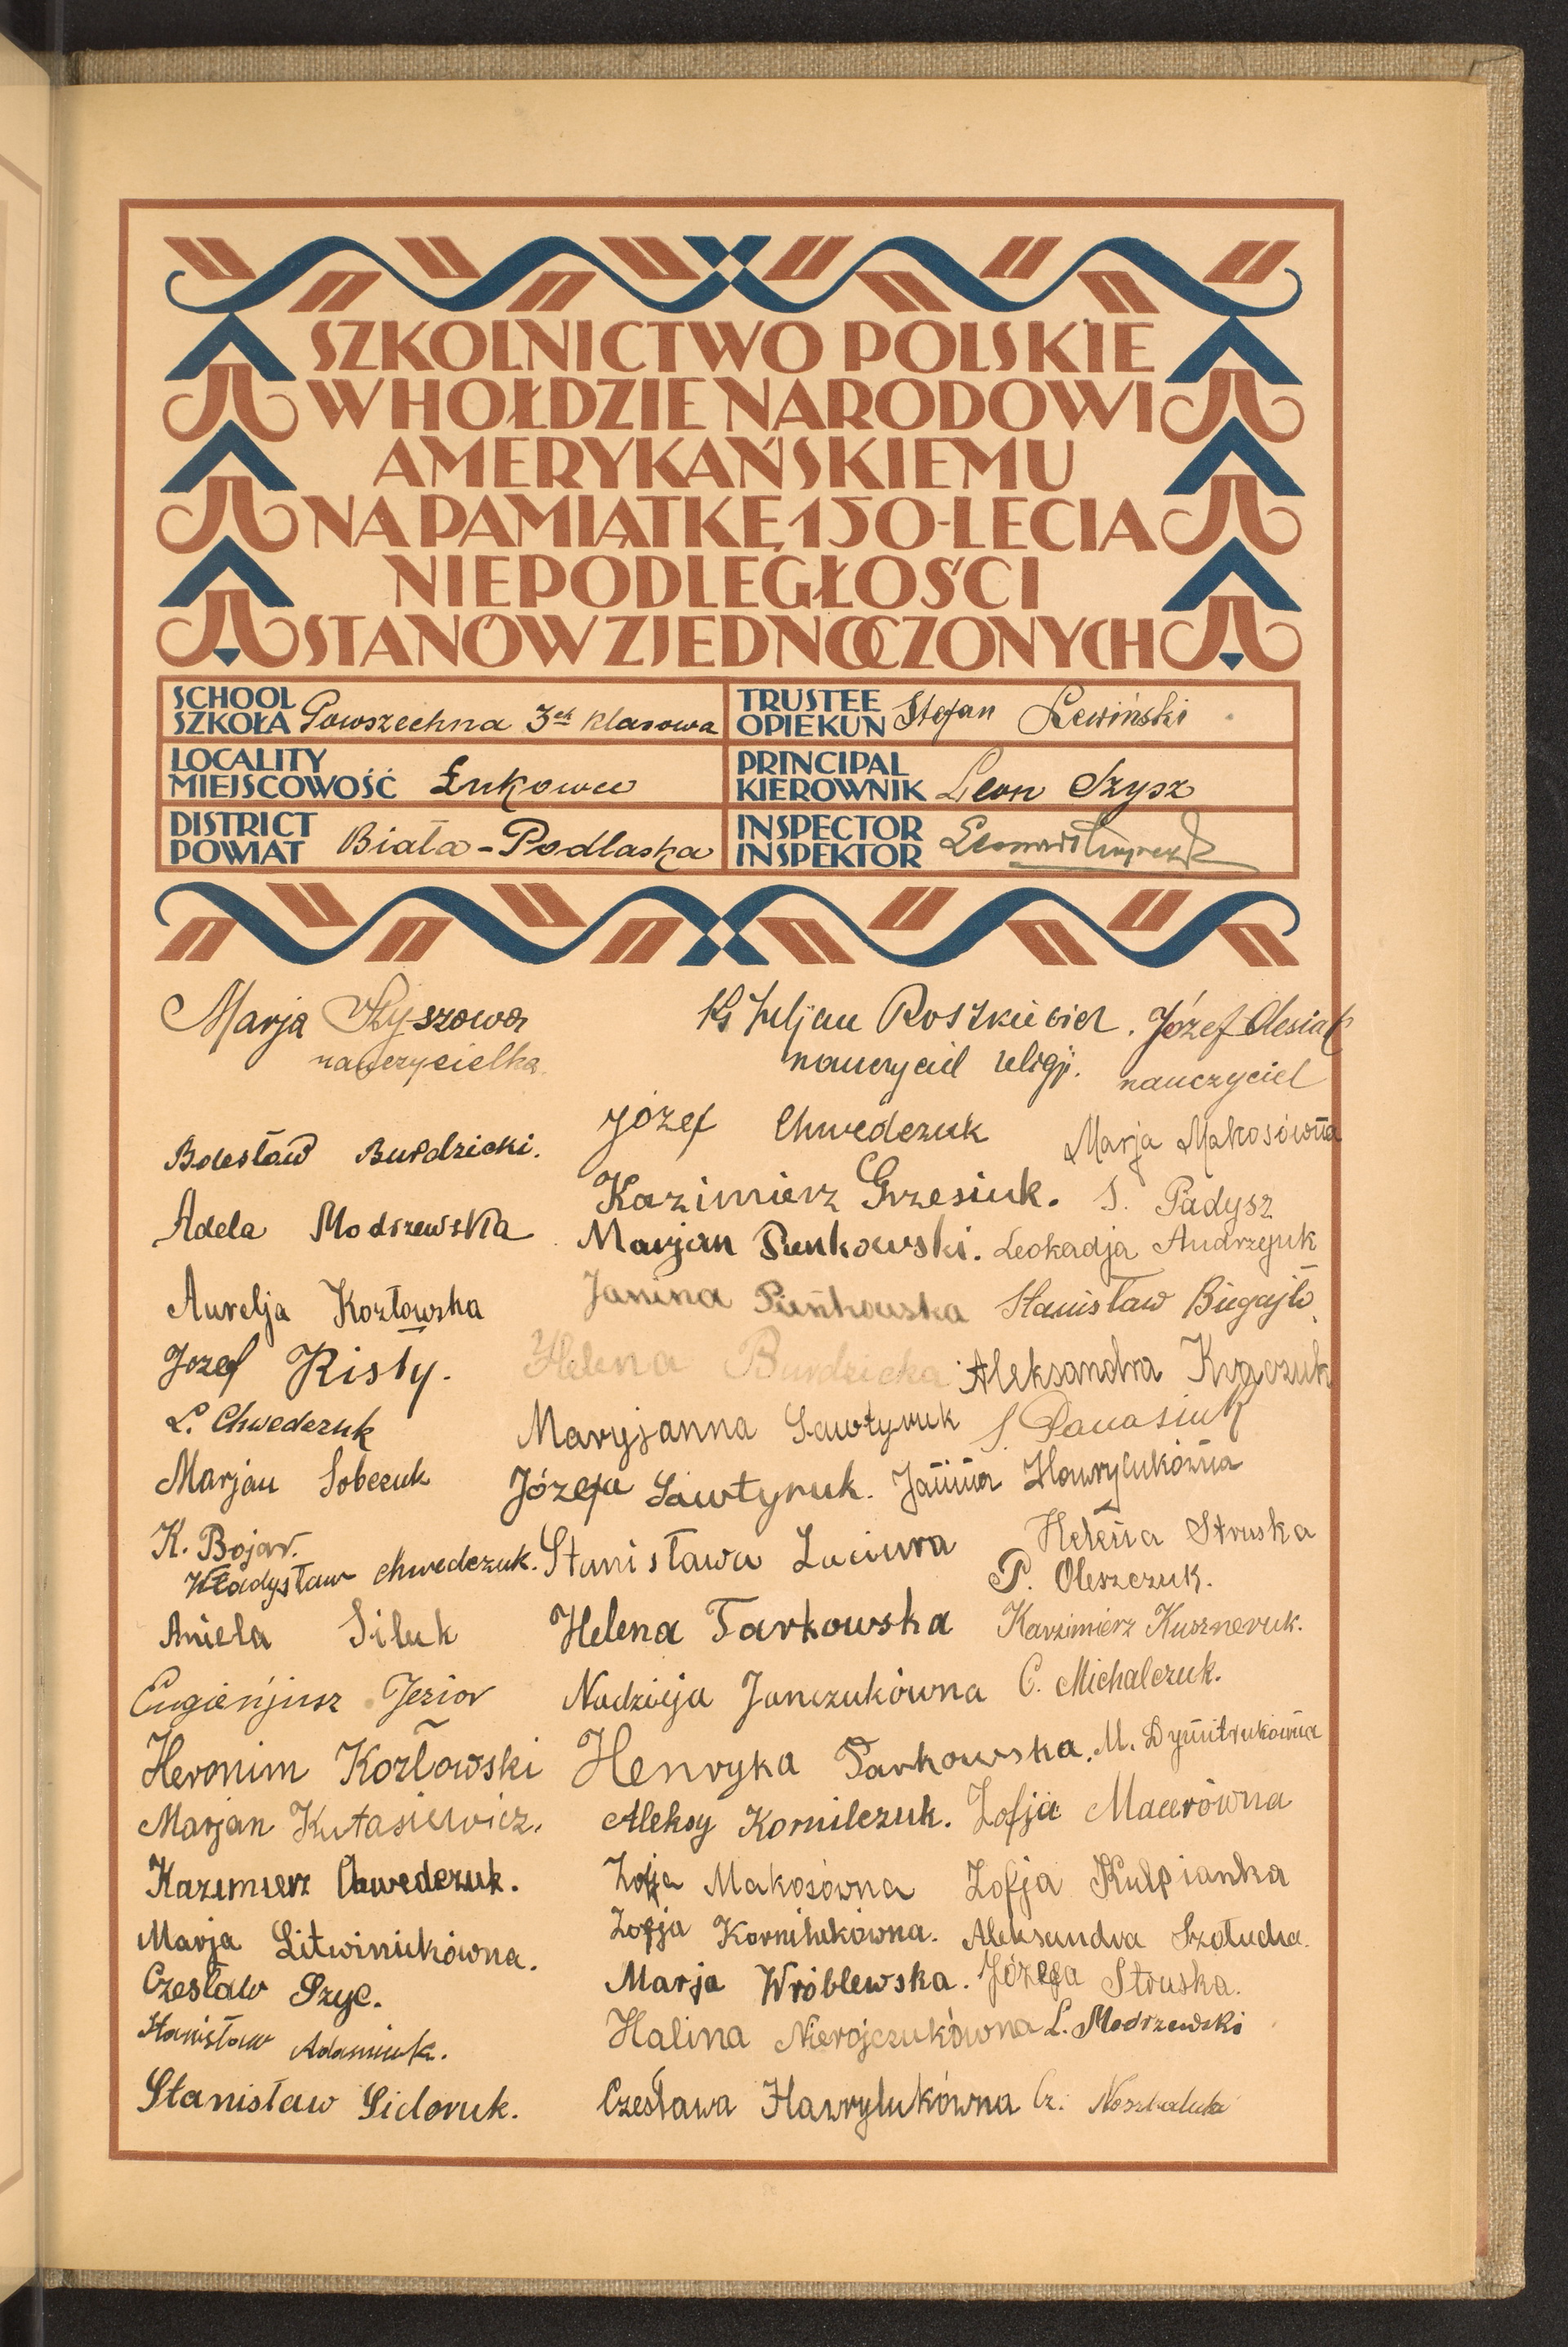 SZKOLNICTWO POLSKIE
W HOŁDZIE NARODOWI
AMERYKAŃSKIEMU
NA PAMIĄTKĘ 150-LECIA
NIEPODLEGŁOŚCI
STANÓW ZJEDNOCZONYCH
SCHOOL
SZKOŁA Powszechna 3ch klasowa
TRUSTEE
OPIEKUN Stefan Lewiński
LOCALITY
MIEJSCOWOŚĆ Łukowce
PRINCIPAL
KIEROWNIK Leon Szysz
DISTRICT
POWIAT Biała-Podlaska
INSPECTOR
INSPEKTOR
Marja Szyszowa
nauczycielka
Ks Juljan Roszkiewicz.
nauczyciel religji.
Józef Olesiak
nauczyciel
Bolesław Burdzicki.
Adela Modrzewska
Aurelja Kozłowska
Jozef Risty.
L. Chwedczuk
Marjan Sobczuk
K. Bojar.
Władysław Chwedczuk.
Aniela Siluk
Eugienjusz Jezior
Heronim Kozłowski
Marjan Kutasiewicz.
Kazimierz Chwedczuk.
Marja Litwiniukówna.
Czesław Szyc.
Stanisław Adamiuk.
Stanisław Sidoruk.
Józef Chwedczuk
Kazimierz Grzesiuk.
Marjan Pienkowski.
Janina Pieńkowska
Helena Burdzicka
Maryjanna Sawtyruk
Józefa Sawtyruk.
Stanisława Zaciura
Helena Tarkowska
Nadzieja Janczukówna
Henryka Parkowska.
Aleksy Kornilczuk.
Zofja Makosówna
Zofja Korniłukówna.
Marja Wróblewska.
Halina Nierojczukówna
Czesława Hawrylukówna
Marja Makosówna
S. Padysz
Leokadja Andrzejuk
Stanisław Biegajło
Aleksandra Kraczuk
S. Panasiuk
Janina Hawrylukówna
Helena Struska
P. Oleszczuk.
Kazimierz Kuszneruk.
C. Michalczuk.
M. Dymitrukówna
Zofja Macerówna
Zofja Kulpianka
Aleksandra Szołucha.
Józefa Struska.
L. Modrzewski
Cz.